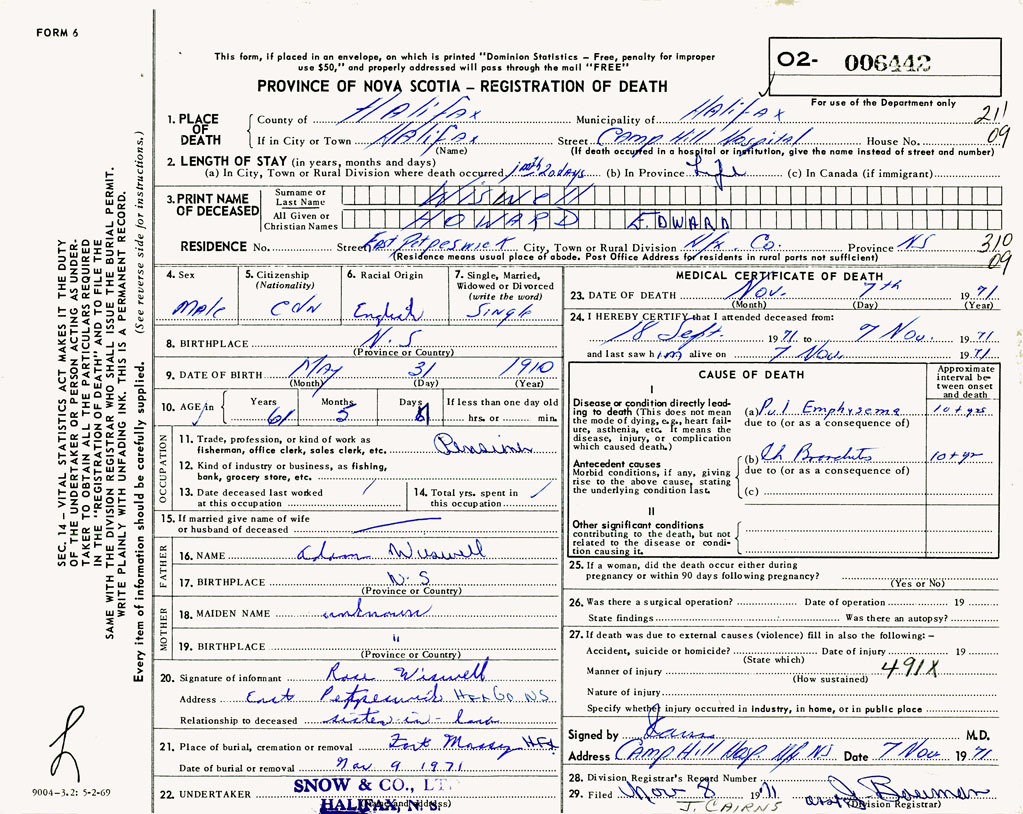 FORM 6
This form, if placed in an envelope, on which is printed "Dominion Statistics – Free, penalty for improper
use $50," and properly addressed will pass through the mail "FREE"
O2- 006442
For use of the Department only
PROVINCE OF NOVA SCOTIA – REGISTRATION OF DEATH
1. PLACE OF DEATH County of Halifax Municipality of Halifax 211
If in City or Town Halifax Street Camp Hill Hospital House No. 09
(Name) (If death occurred in a hospital or institution, give the name instead of street and number)
2. LENGTH OF STAY (in years, months and days)
(a) In City, Town or Rural Division where death occurred 1 mth 20 days (b) In Province Life (c) In Canada (if immigrant)
3. PRINT NAME OF DECEASED Surname or Last Name WISWELL
All Given or Christian Names HOWARD EDWARD
RESIDENCE No. Street East Petpeswick City, Town or Rural Division Hfx. Co. Province NS 310
(Residence means usual place of abode. Post Office Address for residents in rural parts not sufficient) 09
4. Sex Male
5. Citizenship (Nationality) CDN
6. Racial Origin English
7. Single, Married, Widowed or Divorced (write the word) Single
8. BIRTHPLACE N.S
(Province or Country)
9. DATE OF BIRTH May 31 1910
(Month) (Day) (Year)
10. AGE in Years 61 Months 5 Days If less than one day old hrs. or min.
OCCUPATION
11. Trade, profession, or kind of work as
fisherman, office clerk, sales clerk, etc. Pensioner
12. Kind of industry or business, as fishing,
bank, grocery store, etc.
13. Date deceased last worked at this occupation
14. Total yrs. spent in this occupation
15. If married give name of wife
or husband of deceased
FATHER
16. NAME Adam Wiswell
17. BIRTHPLACE N.S
(Province or Country)
MOTHER
18. MAIDEN NAME unknown
19. BIRTHPLACE "
(Province or Country)
20. Signature of informant Rose Wiswell
Address East Petpeswick Hfx Co. NS
Relationship to deceased sister-in-law
21. Place of burial, cremation or removal Fort Massey Hfx
Date of burial or removal Nov 9 1971
22. UNDERTAKER SNOW & CO., LT
HALIFAX, N. S.
(Name and address)
MEDICAL CERTIFICATE OF DEATH
23. DATE OF DEATH Nov. 7th 1971
(Month) (Day) (Year)
24. I HEREBY CERTIFY that I attended deceased from:
18 Sept. 1971 to 7 Nov. 1971
and last saw him alive on 7 Nov. 1971
CAUSE OF DEATH
Approximate interval between onset and death
I
Disease or condition directly leading to death (This does not mean the mode of dying, e.g., heart failure, asthenia, etc. It means the disease, injury, or complication which caused death.)
(a) Pul Emphysema 10+ yrs
due to (or as a consequence of)
Antecedent causes
Morbid conditions, if any, giving rise to the above cause, stating the underlying condition last.
(b) Ch Bronchitis 10+ yr
due to (or as a consequence of)
(c)
II
Other significant conditions
contributing to the death, but not related to the disease or condition causing it.
25. If a woman, did the death occur either during
pregnancy or within 90 days following pregnancy?
(Yes or No)
26. Was there a surgical operation? Date of operation 19
State findings Was there an autopsy?
27. If death was due to external causes (violence) fill in also the following: –
Accident, suicide or homicide? Date of injury 19
(State which)
Manner of injury 491X
(How sustained)
Nature of injury
Specify whether injury occurred in industry, in home, or in public place
Signed by M.D.
Address Camp Hill Hosp. Hfx NS Date 7 Nov 1971
28. Division Registrar's Record Number
29. Filed Nov 8 1971 J Bauman
J. CAIRNS (Division Registrar)
SEC. 14 – VITAL STATISTICS ACT MAKES IT THE DUTY
OF THE UNDERTAKER OR PERSON ACTING AS UNDER-
TAKER TO OBTAIN ALL THE PARTICULARS REQUIRED
IN THE "REGISTRATION OF DEATH" AND TO FILE THE
SAME WITH THE DIVISION REGISTRAR WHO SHALL ISSUE THE BURIAL PERMIT.
WRITE PLAINLY WITH UNFADING INK. THIS IS A PERMANENT RECORD.
Every item of information should be carefully supplied. (See reverse side for instructions.)
9004–3.2: 5-2-69